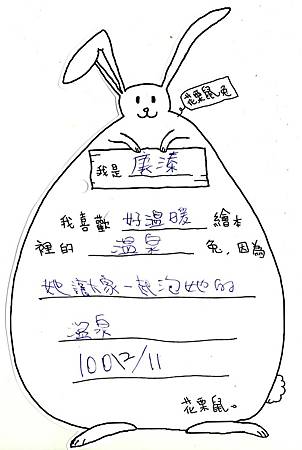 花栗鼠兔
我是 康溱
我喜歡 好溫暖 繪本
裡的 溫泉 兔,因為
她讓大家一起泡她的
溫泉
100 12/11
花栗鼠。